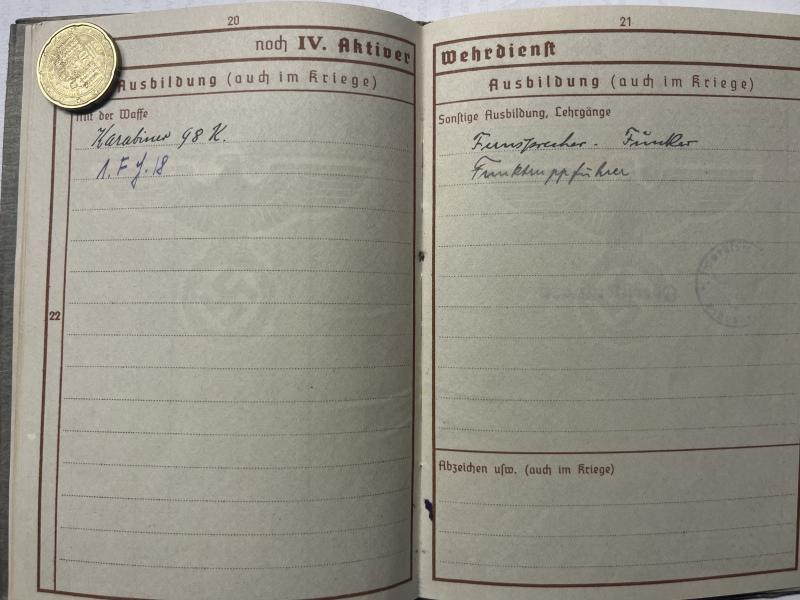 20
noch IV. Aktiver
Ausbildung (auch im Kriege)
Mit der Waffe
Karabiner 98 K.
22
21
Wehrdienst
Ausbildung (auch im Kriege)
Sonstige Ausbildung, Lehrgänge
Fernsprecher. Funker
Funktruppführer
Abzeichen usw. (auch im Kriege)